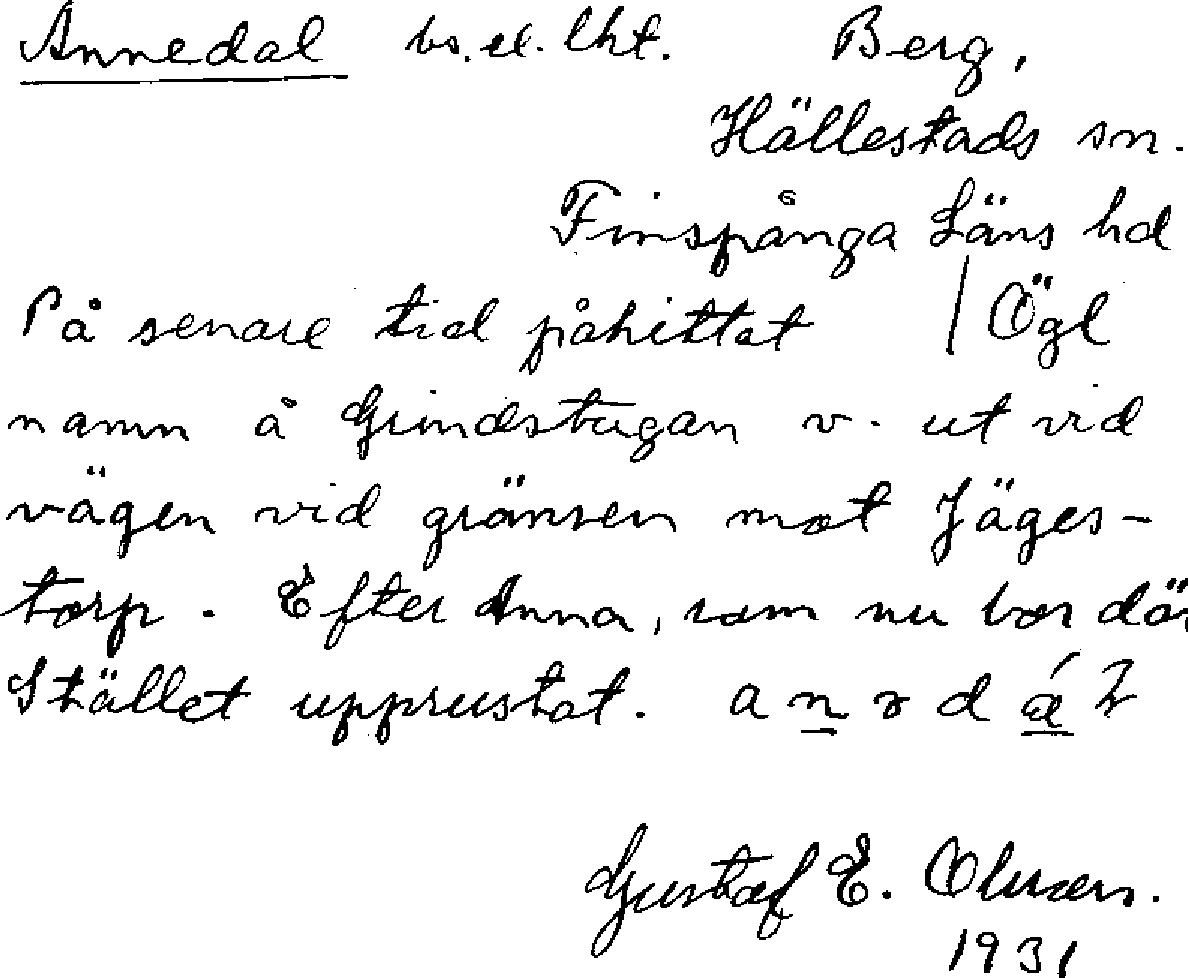 Annedal bs. el. lht. Berg,
Hällestads sn.
Finspånga Läns hd
På senare tid påhittat / Ögl
namn å Grindstugan v. ut vid
vägen vid gränsen mot Jäges-
torp. Efter Anna, som nu bor där
Stället upprustat. a n
Gustaf E. Olsson.
1931